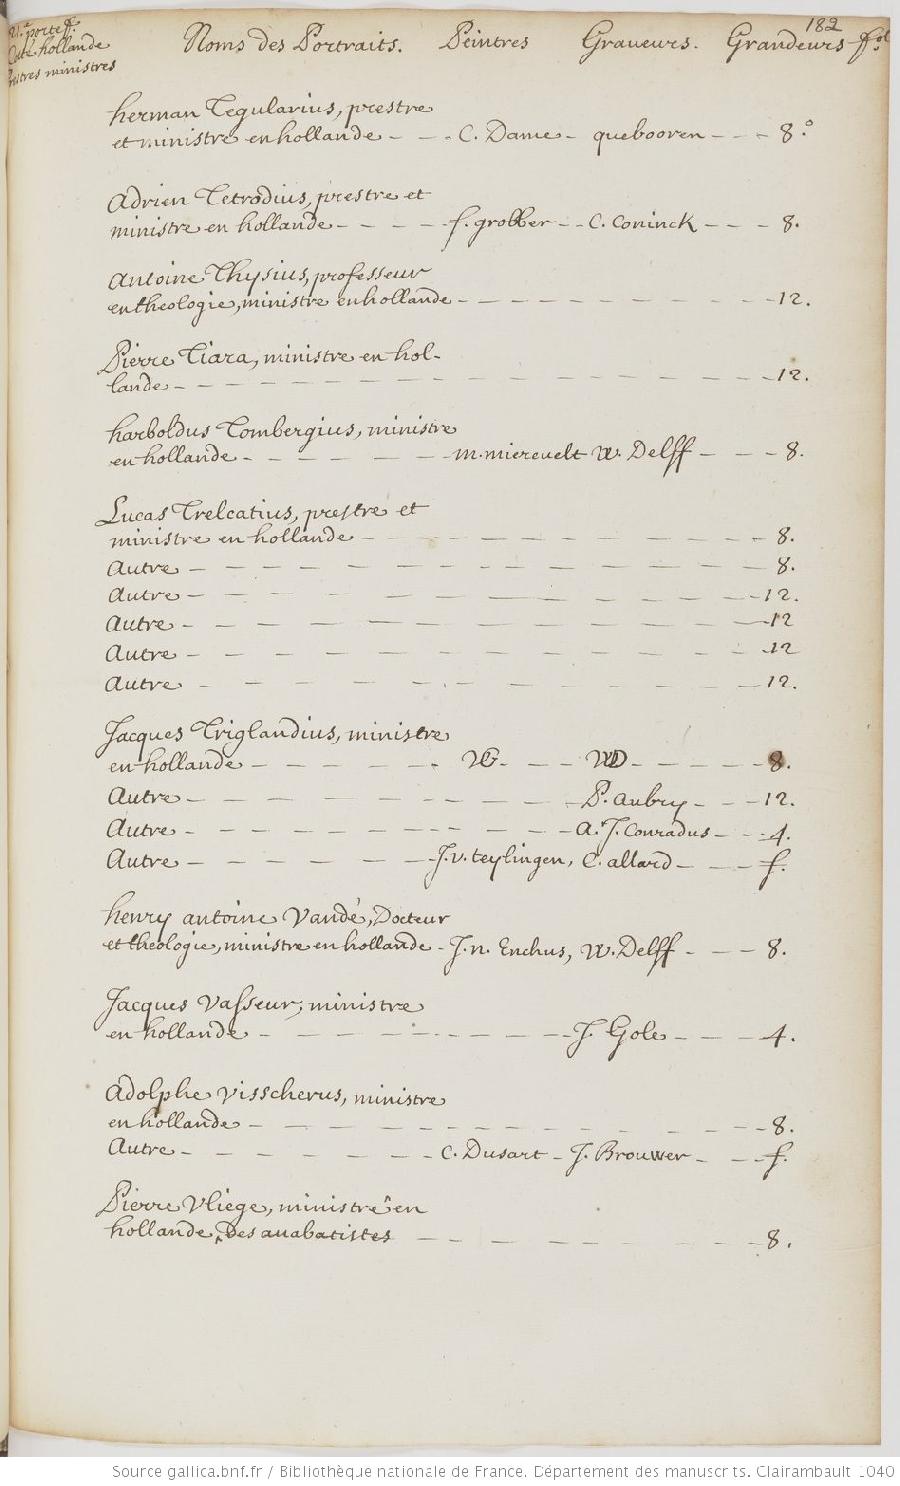 182
porte f.
Coté hollande
Prestres ministres
Noms des Portraits. Peintres Graveurs. Grandeurs fol.
herman Tegularius, prestre
et ministre en hollande - - - C. Dame - quebooren - - - 8.°
Adrien Tetrodius, prestre et
ministre en hollande - - - - f. grobber - - C. Coninck - - - 8.
Antoine Thysius, professeur
en theologie, ministre en hollande - - - - - - - - - - - 12.
Pierre Tiara, ministre en hol-
lande - - - - - - - - - - - - - - - 12.
harboldus Tombergius, ministre
en hollande - - - - - - m. mierevelt W. Delff - - - 8.
Lucas Trelcatius, prestre et
ministre en hollande - - - - - - - - 8.
Autre - - - - - - - - - - - - - 8.
Autre - - - - - - - - - - - - - 12.
Autre - - - - - - - - - - - - - 12
Autre - - - - - - - - - - - - - 12
Autre - - - - - - - - - - - - - 12.
Jacques Triglandius, ministre
en hollande - - - - - - VG - - - WD - - - - 8.
Autre - - - - - - - - - P. aubry - - - 12.
Autre - - - - - - - - - A. J. Conradus - - - 4.
Autre - - - - - - J. v. teylingen, C. allard - - - f.
henry antoine Vandé, Docteur
et theologie, ministre en hollande - J. n. Enchus, W. Delff - - - 8.
Jacques Vasseur, ministre
en hollande - - - - - - - - J. Gole - - - 4.
Adolphe Visscherus, ministre
en hollande - - - - - - - - - - - 8.
Autre - - - - - - - C. Dusart - J. Brouwer - - - f.
Pierre Vliege, ministre en
hollande, des anabatistes - - - - - - - 8.
Source gallica.bnf.fr / Bibliothèque nationale de France. Département des manuscrits. Clairambault 1040